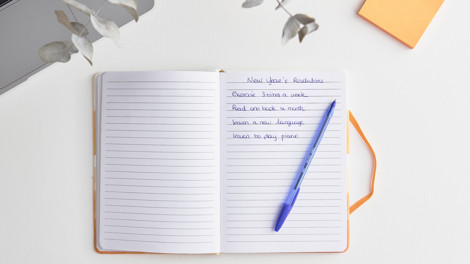 New Year's Resolutions
Exercise 3 times a week
Read one book a month
Learn a new language
Learn to play piano